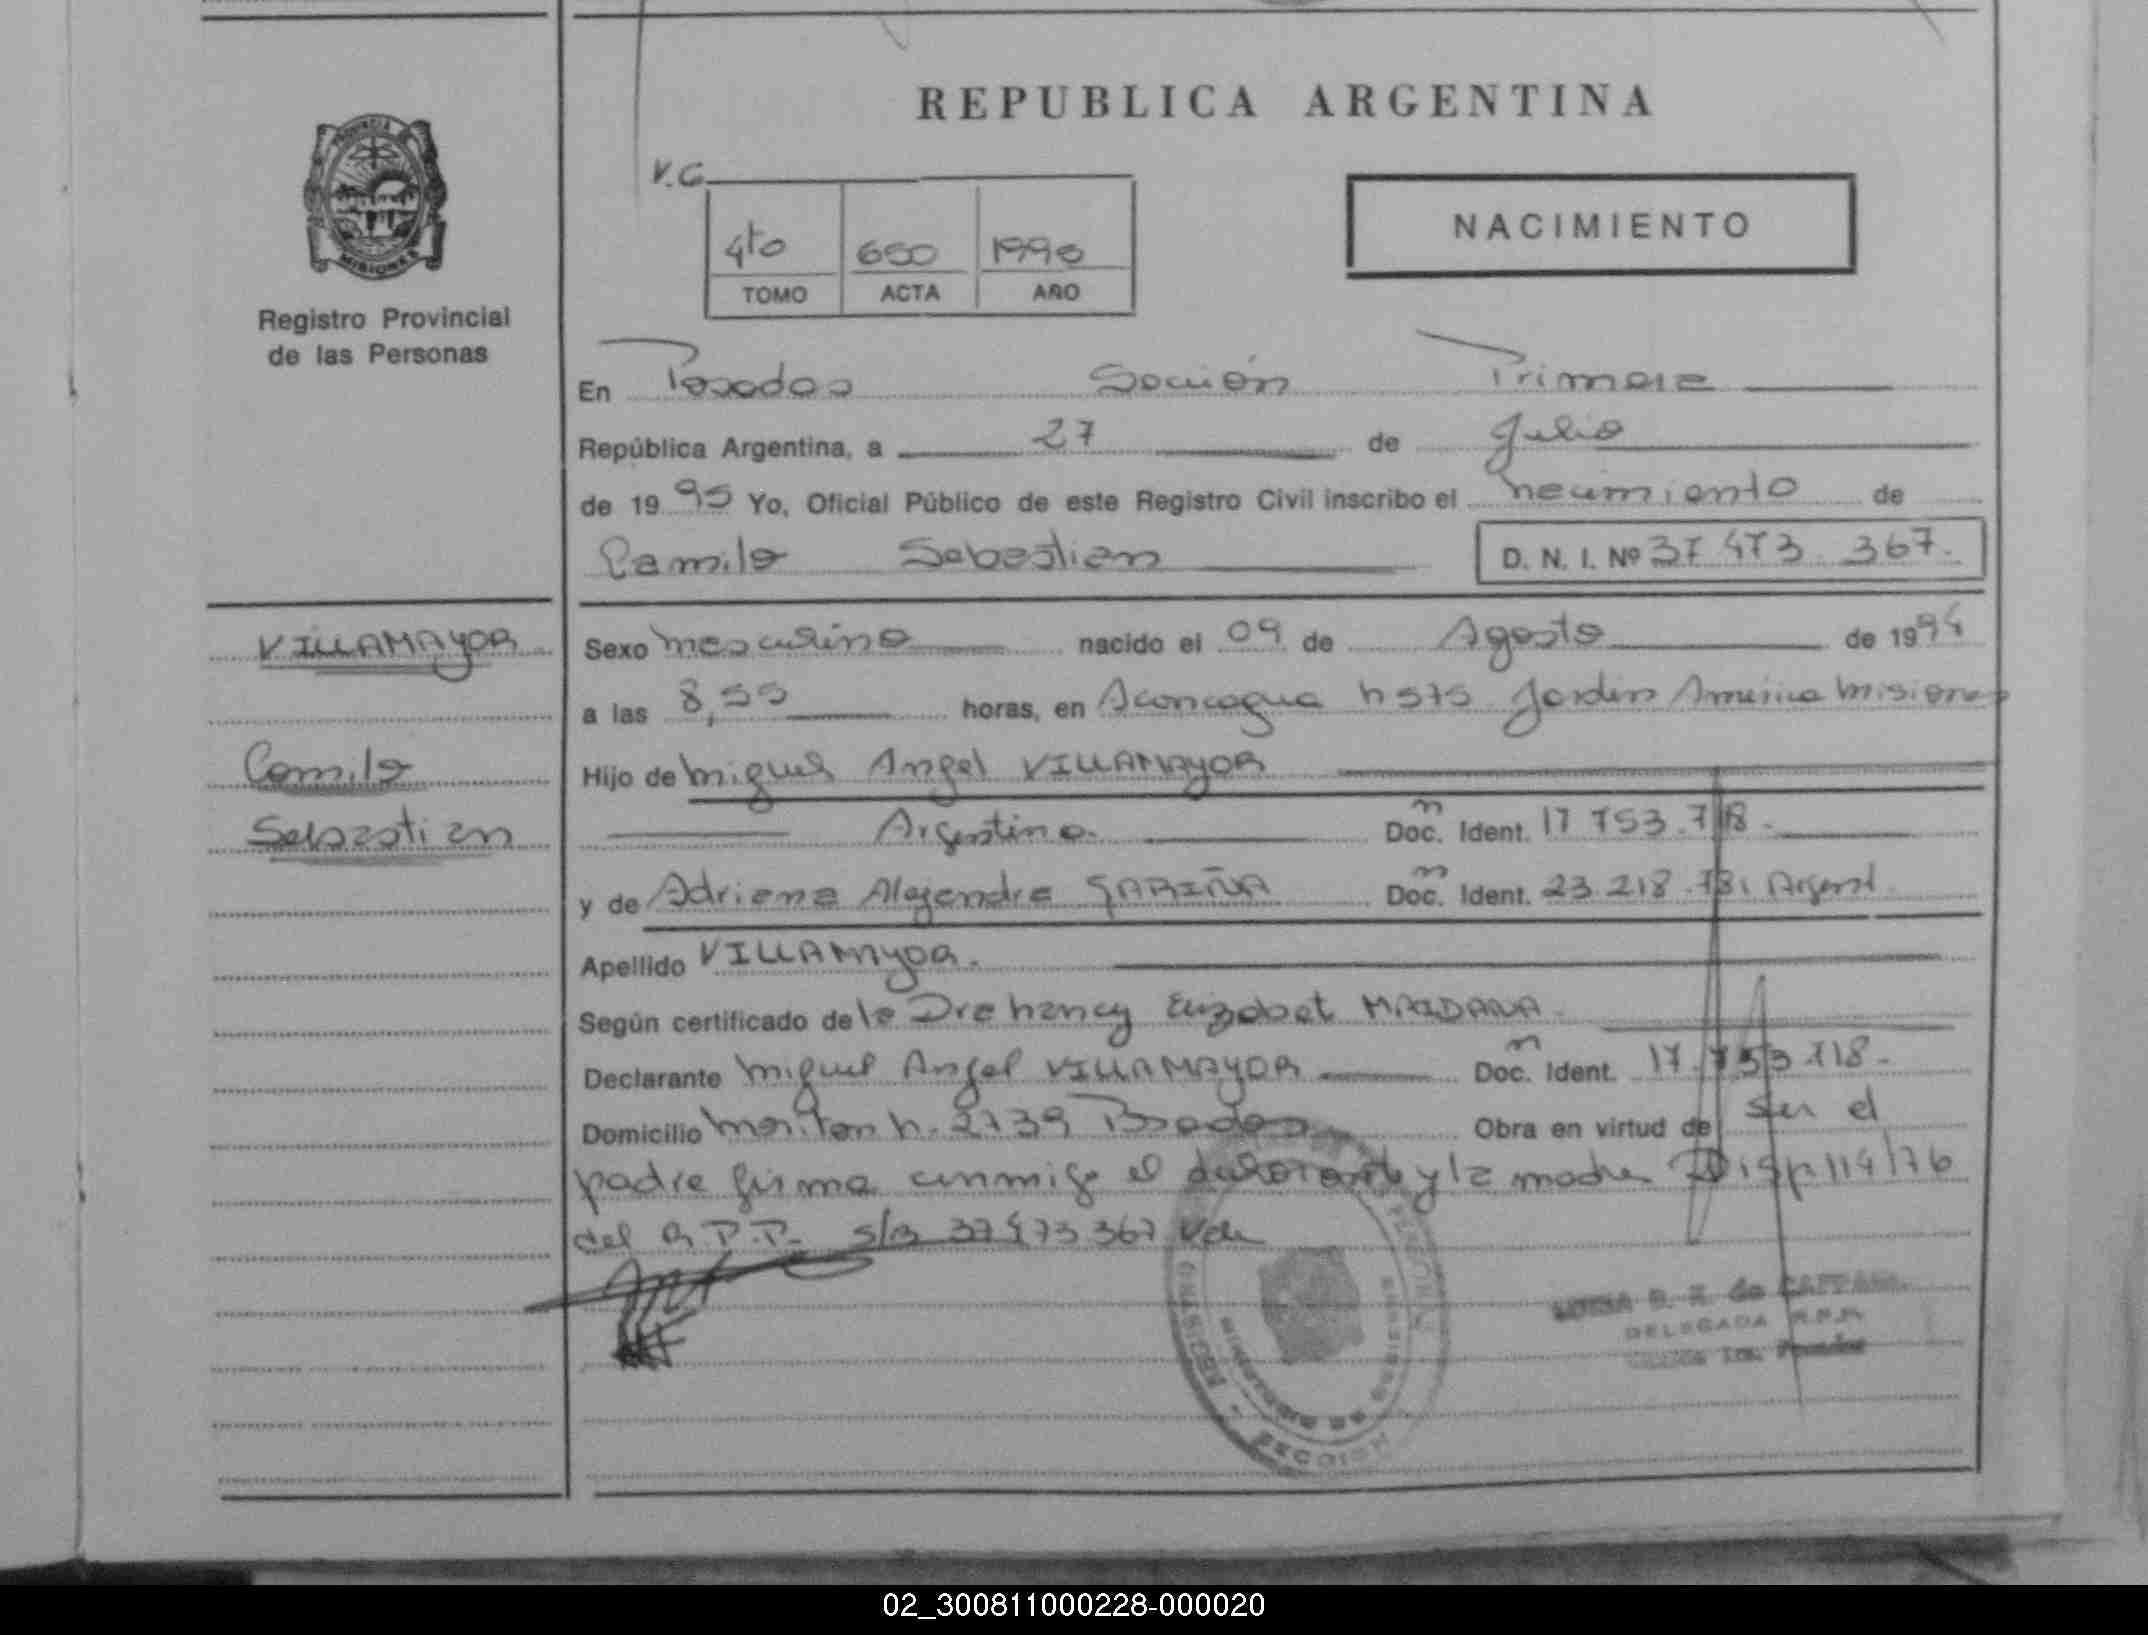 REPUBLICA ARGENTINA
PROVINCIA
MISIONES
Registro Provincial
de las Personas
V.C.
4to 650 1990
TOMO ACTA AÑO
NACIMIENTO
En Posadas Sección Primera
República Argentina, a 27 de Julio
de 1995 Yo, Oficial Público de este Registro Civil inscribo el nacimiento de
Camilo Sebastian D. N. I. Nº 37 473 367.
VILLAMAYOR
Camilo
Sebastian
Sexo masculino nacido el 09 de Agosto de 1994
a las 8,55 horas, en Aconcagua n 575 Jardin America Misiones
Hijo de Miguel Angel VILLAMAYOR
Argentino. Doc. Ident. 17 753.718.
y de Adriana Alejandra GARIÑA Doc. Ident. 23.218.781 Argent.
Apellido VILLAMAYOR.
Según certificado de la Dra Nancy Elizabet MAIDANA
Declarante Miguel Angel VILLAMAYOR Doc. Ident. 17.753.718.
Domicilio n. 2739 Posadas Obra en virtud de ser el
padre firma conmigo el declarante y la madre Disp 114/76
del R.P.P. s/a 37473367 Vale
de CAFFARO
DELEGADA R.P.P.
1ra. Posadas
REGISTRO
SECCION
MISIONES
02_300811000228-000020